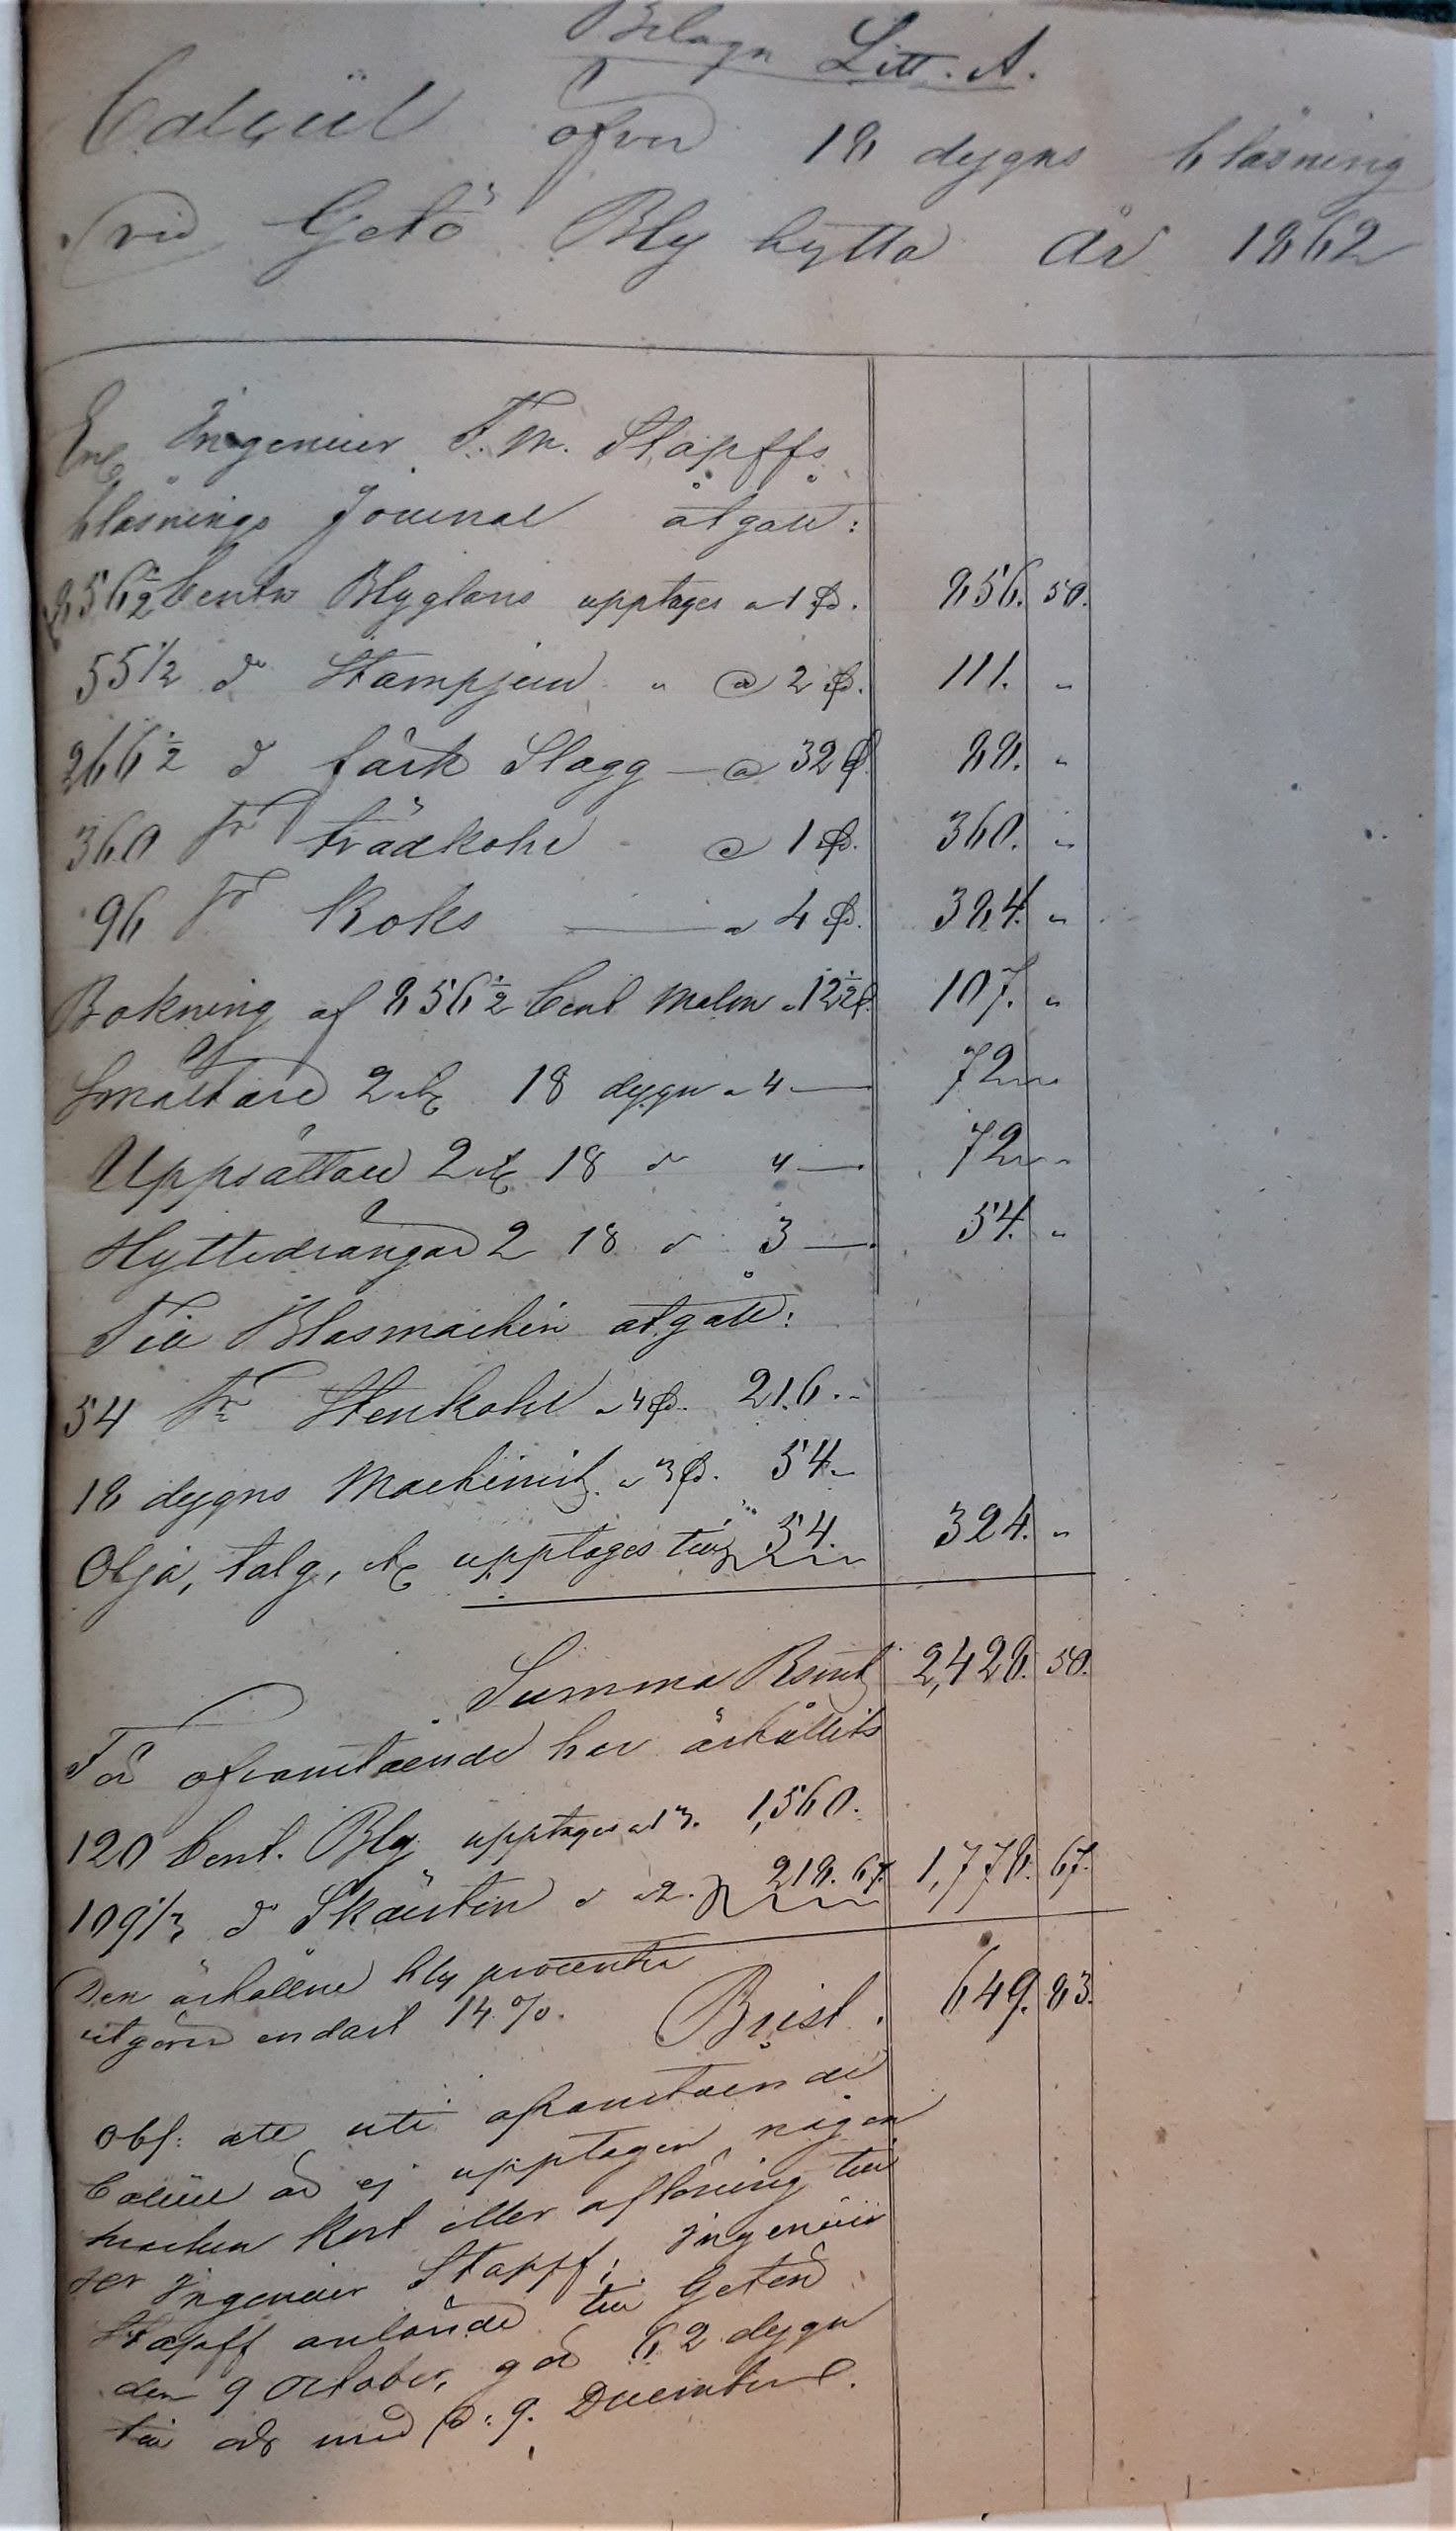 Bilaga Litt. A.
Calcül öfver 18 dygns blåsning
vid Getö Bly hytta År 1862
Enl Ingenieur F. M. Stapffs
blåsnings Journal åtgått:
856½ Centn Blyglans upptages a 1 Rd. 856. 50.
55½ do Stampjern " @ 2 Rd. 111. "
266½ d färsk Slagg — @ 32 88. "
360 Tr trädkohl @ 1 Rd. 360. "
96 Tr Koks — a 4 Rd. 384. "
Bokning af 856½ Cent Malm a 12½ 107. "
Smältare 2 st 18 dygn a 4 — 72 "
Uppsättare 2 st 18 d 4 — 72 "
Hyttedrängar 2 18 d 3 — 54. "
Till Blasmachin åtgått:
54 Tr Stenkohl a 4 Rd. 216. "
18 dygns Machinist a 3 Rd. 54. "
Olja, talg, etc upptages till 54. 324. "
Summa Rsmt 2,428. 50.
För ofvanstående har erhållits
120 Cent. Bly upptages a 13. 1,560.
109⅓ d Skärsten d a 2. 218. 67. 1,778. 67.
Den erhållne bly procenten
utgör endast 14 %. Brist. 649. 83.
Obs: att uti ofvanstående
Calcül är ej upptagen någon
kost eller aflöning till
Herr Ingenieur Stapff; Ingenieur
Stapff anlände till Getön
den 9 October, gör 62 dygn
till och med d. 9. December.